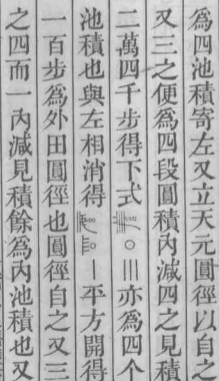 為四池積寄左又立天元圓徑以自之
又三之便為四段圓積內減四之見積
二萬四千步得下式○|||亦為四个
池積也與左相消得平方開得
一百步為外田圓徑也圓徑自之又三
之四而一內減見積餘為內池積也又